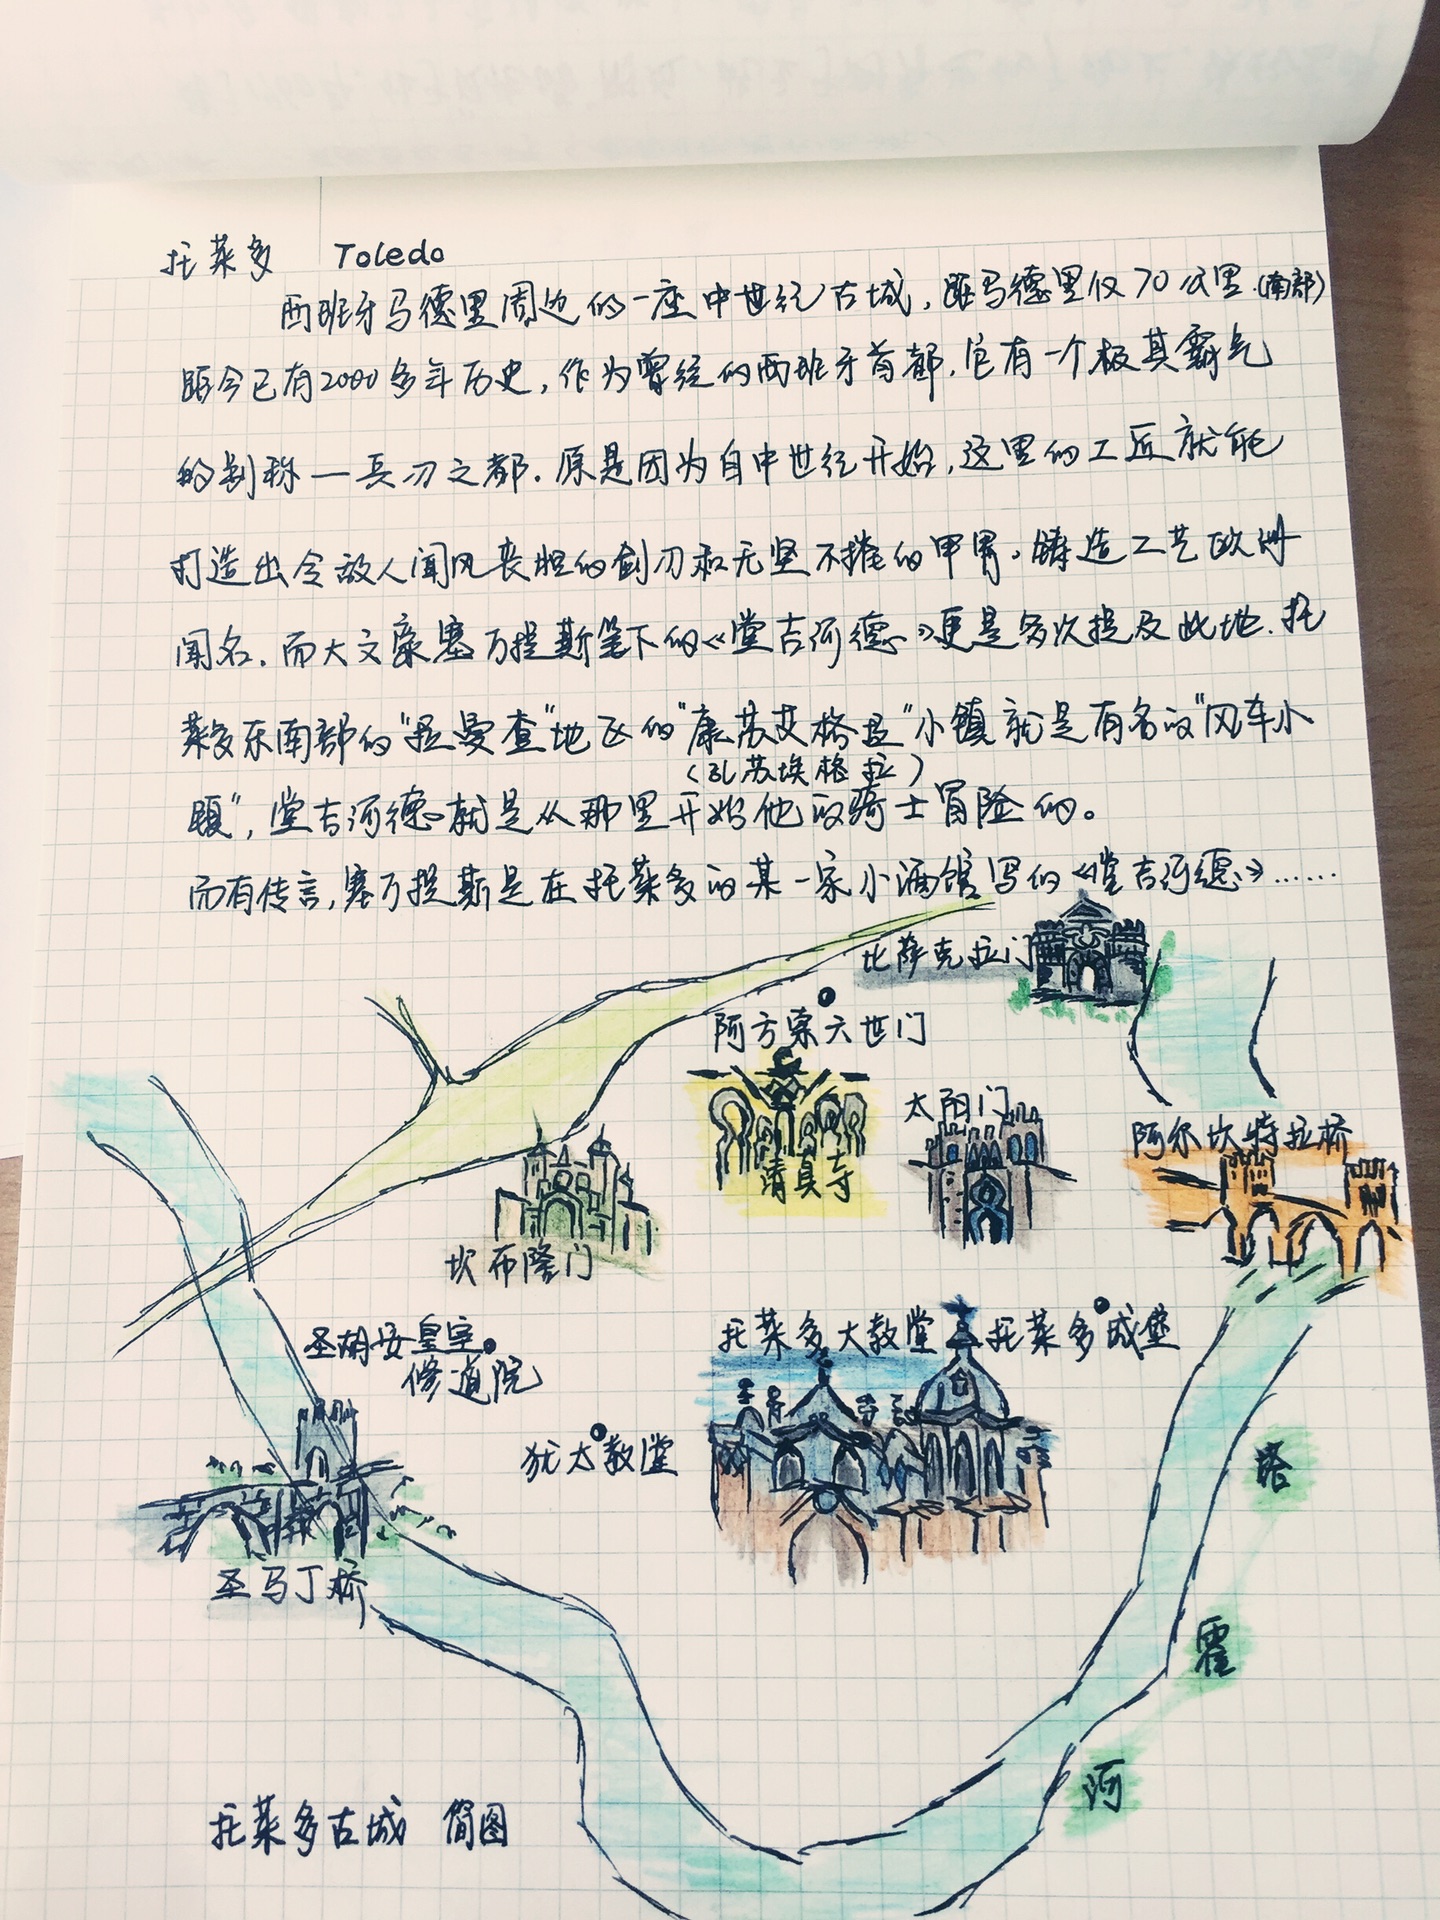 托莱多 Toledo
西班牙马德里周边的一座中世纪古城，距马德里仅70公里（南部）
距今已有2000多年历史，作为曾经的西班牙首都，它有一个极其霸气
的别称—兵刃之都。原是因为自中世纪开始，这里的工匠就能
打造出令敌人闻风丧胆的剑刃和无坚不摧的甲胄，铸造工艺欧洲
闻名。而大文豪塞万提斯笔下的《堂吉诃德》更是多次提及此地，托
莱多东南部的"拉曼查"地区的"康苏艾格拉"小镇就是有名的"风车小
（孔苏埃格拉）
镇"，堂吉诃德就是从那里开始他的骑士冒险的。
而有传言，塞万提斯是在托莱多的某一家小酒馆写的《堂吉诃德》……
比萨克拉门
阿方索六世门
太阳门
阿尔坎特拉桥
清真寺
坎布隆门
圣胡安皇家
修道院
托莱多大教堂
托莱多城堡
犹太教堂
圣马丁桥
塔
霍
阿
托莱多古城 简图